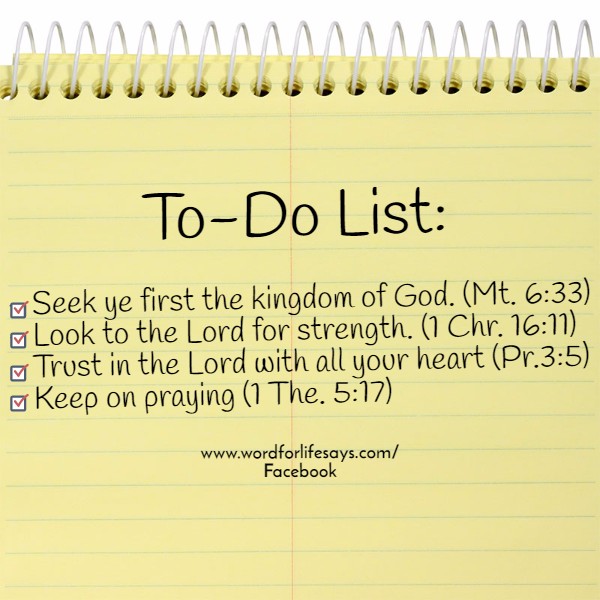 To-Do List:
Seek ye first the kingdom of God. (Mt. 6:33)
Look to the Lord for strength. (1 Chr. 16:11)
Trust in the Lord with all your heart (Pr.3:5)
Keep on praying (1 The. 5:17)
www.wordforlifesays.com/
Facebook